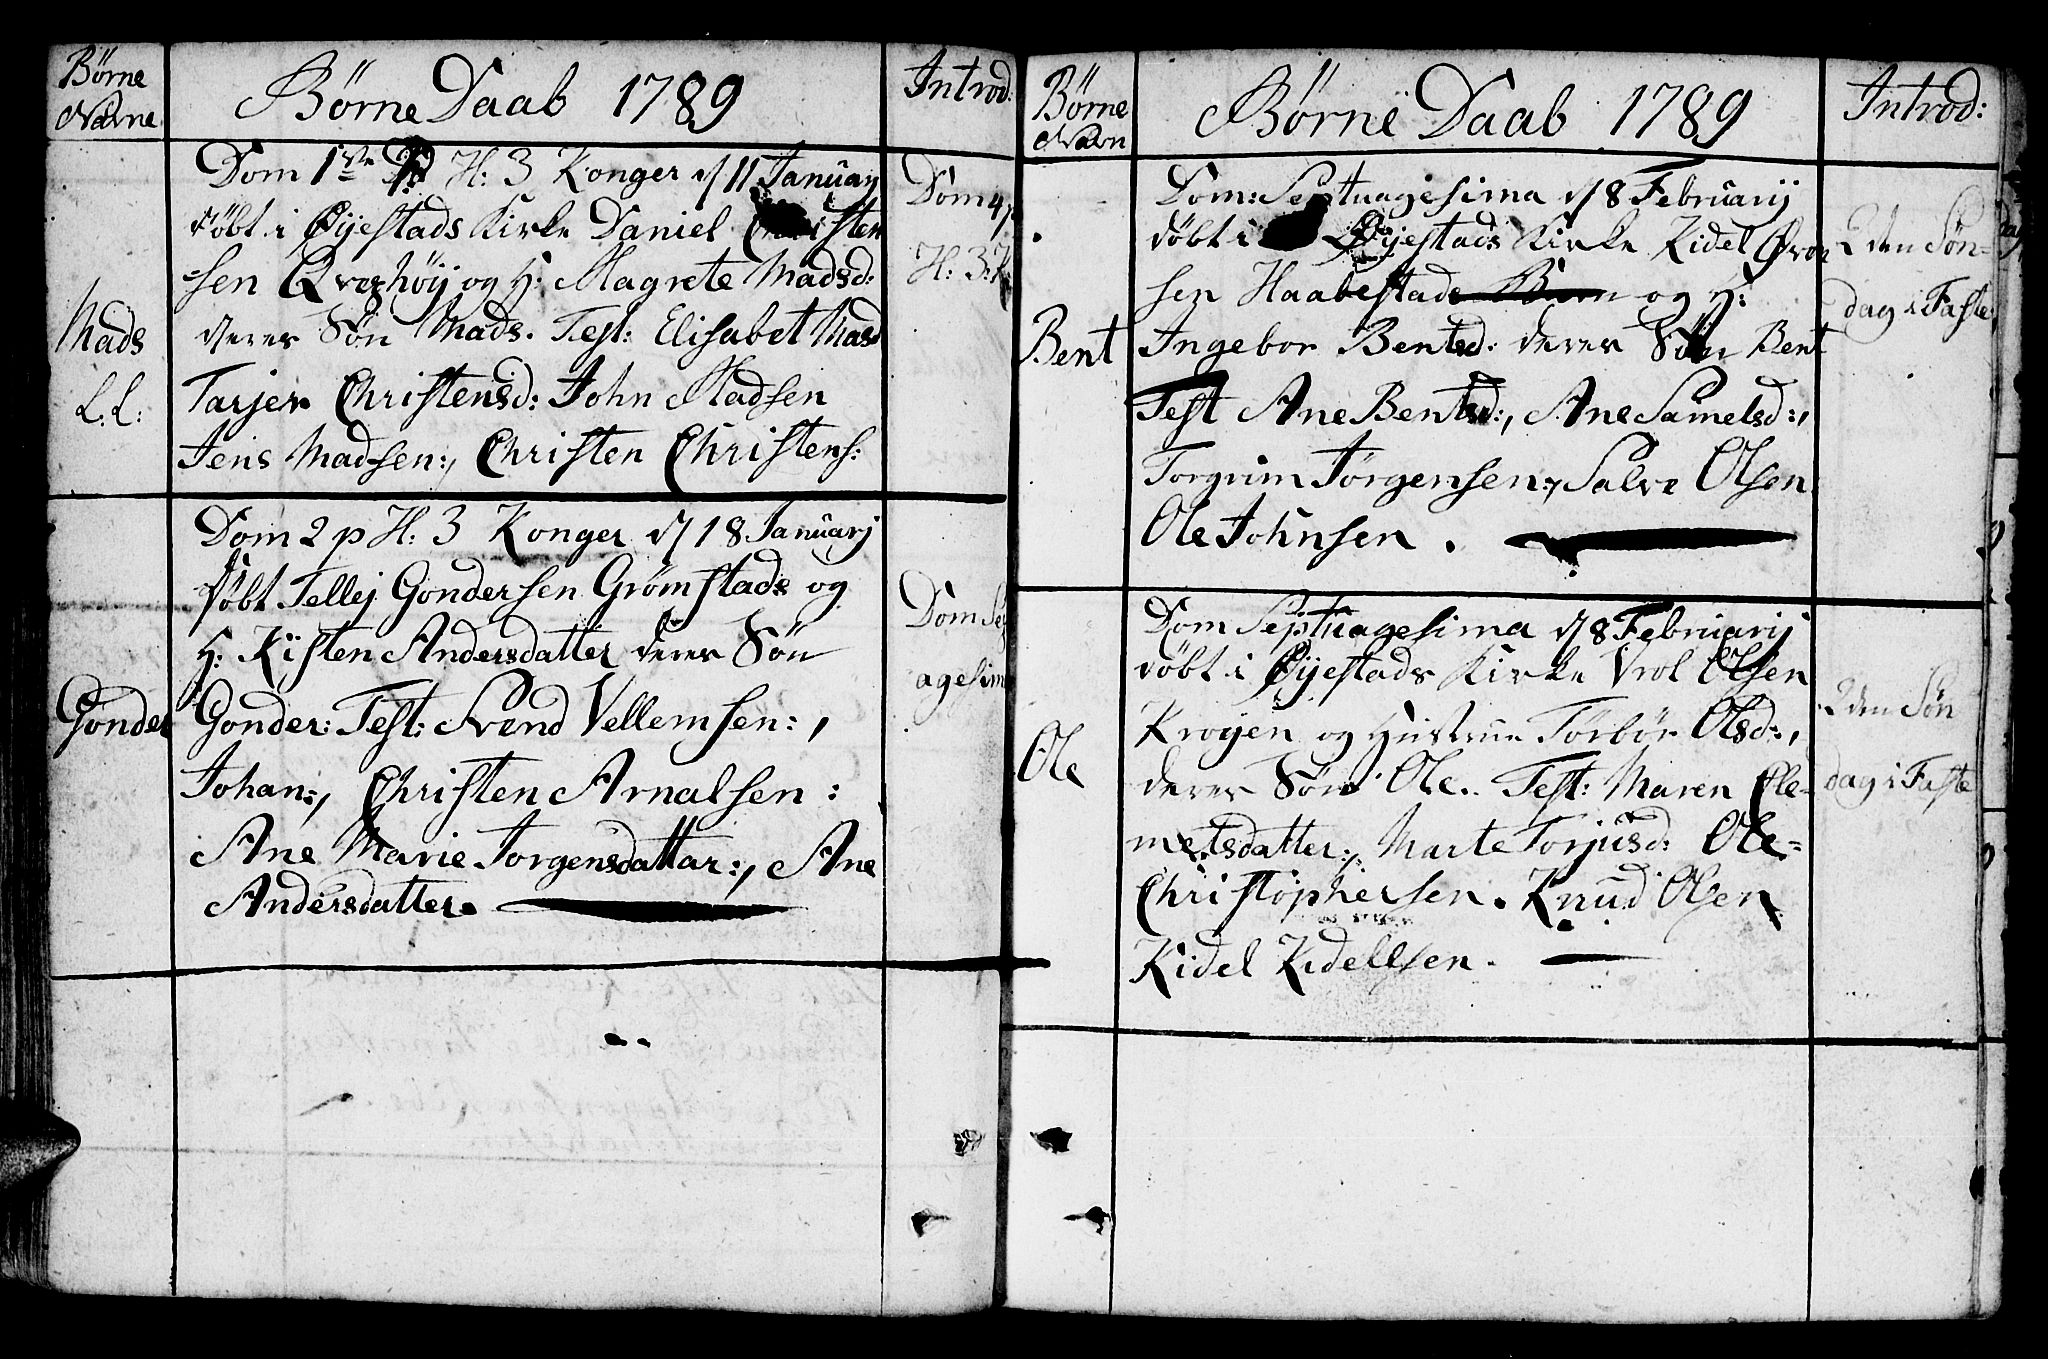 Børne
Navne
Børne Daab 1789
Introd:
Dom 1ste H: 3 Konger d 11 Januarij
døbt i Øijestads Kirke Daniel Christen
sen Qvashøij og H: Magrete Madsd:
deres Søn Mads. Test: Elisabet Mads
Tarjer Christensd: John Madsen
Jens Madsen:, Christen Christens:
Mads
L.L:
Dom 4 p
H: 3: K
Dom 2 p H: 3 Konger d 18 Januarij
døbt Tellej Gondersen Grømstads og
H: Kisten Andersdatter deres Søn
Gonder: Test: Svend Vellemsen:,
Johan:, Christen Arnalsen:
Ane Marie Jorgensdattar:, Ane
Andersdatter.
Gonder
Dom Sep
agesim
Børne
Navn
Børne Daab 1789
Introd:
Dom: Septuagesima d 8 Februarij
døbt i Øijestads Kirke Kidel
sen Haabestads Børn og H:
Ingebor Bentsd: deres Søn Bent
Test Ane Bentsd:, Ane Samelsd:,
Torgrim Jørgensen:, Salve Olsen
Ole Johnsen.
Bent
2den Søn-
dag i Faste
Dom Septuagesima d 8 Februarij
døbt i Øijestads Kirke Vrol Olsen
Krogen og Hustrue Torbør Olsd:,
deres Søn Ole. Test: Maren Cle-
metsdatter:, Marte Torjusd: Ole-
Christophersen. Knud Olsen
Kidel Kidellsen.
Ole
2den Søn
dag i Faste